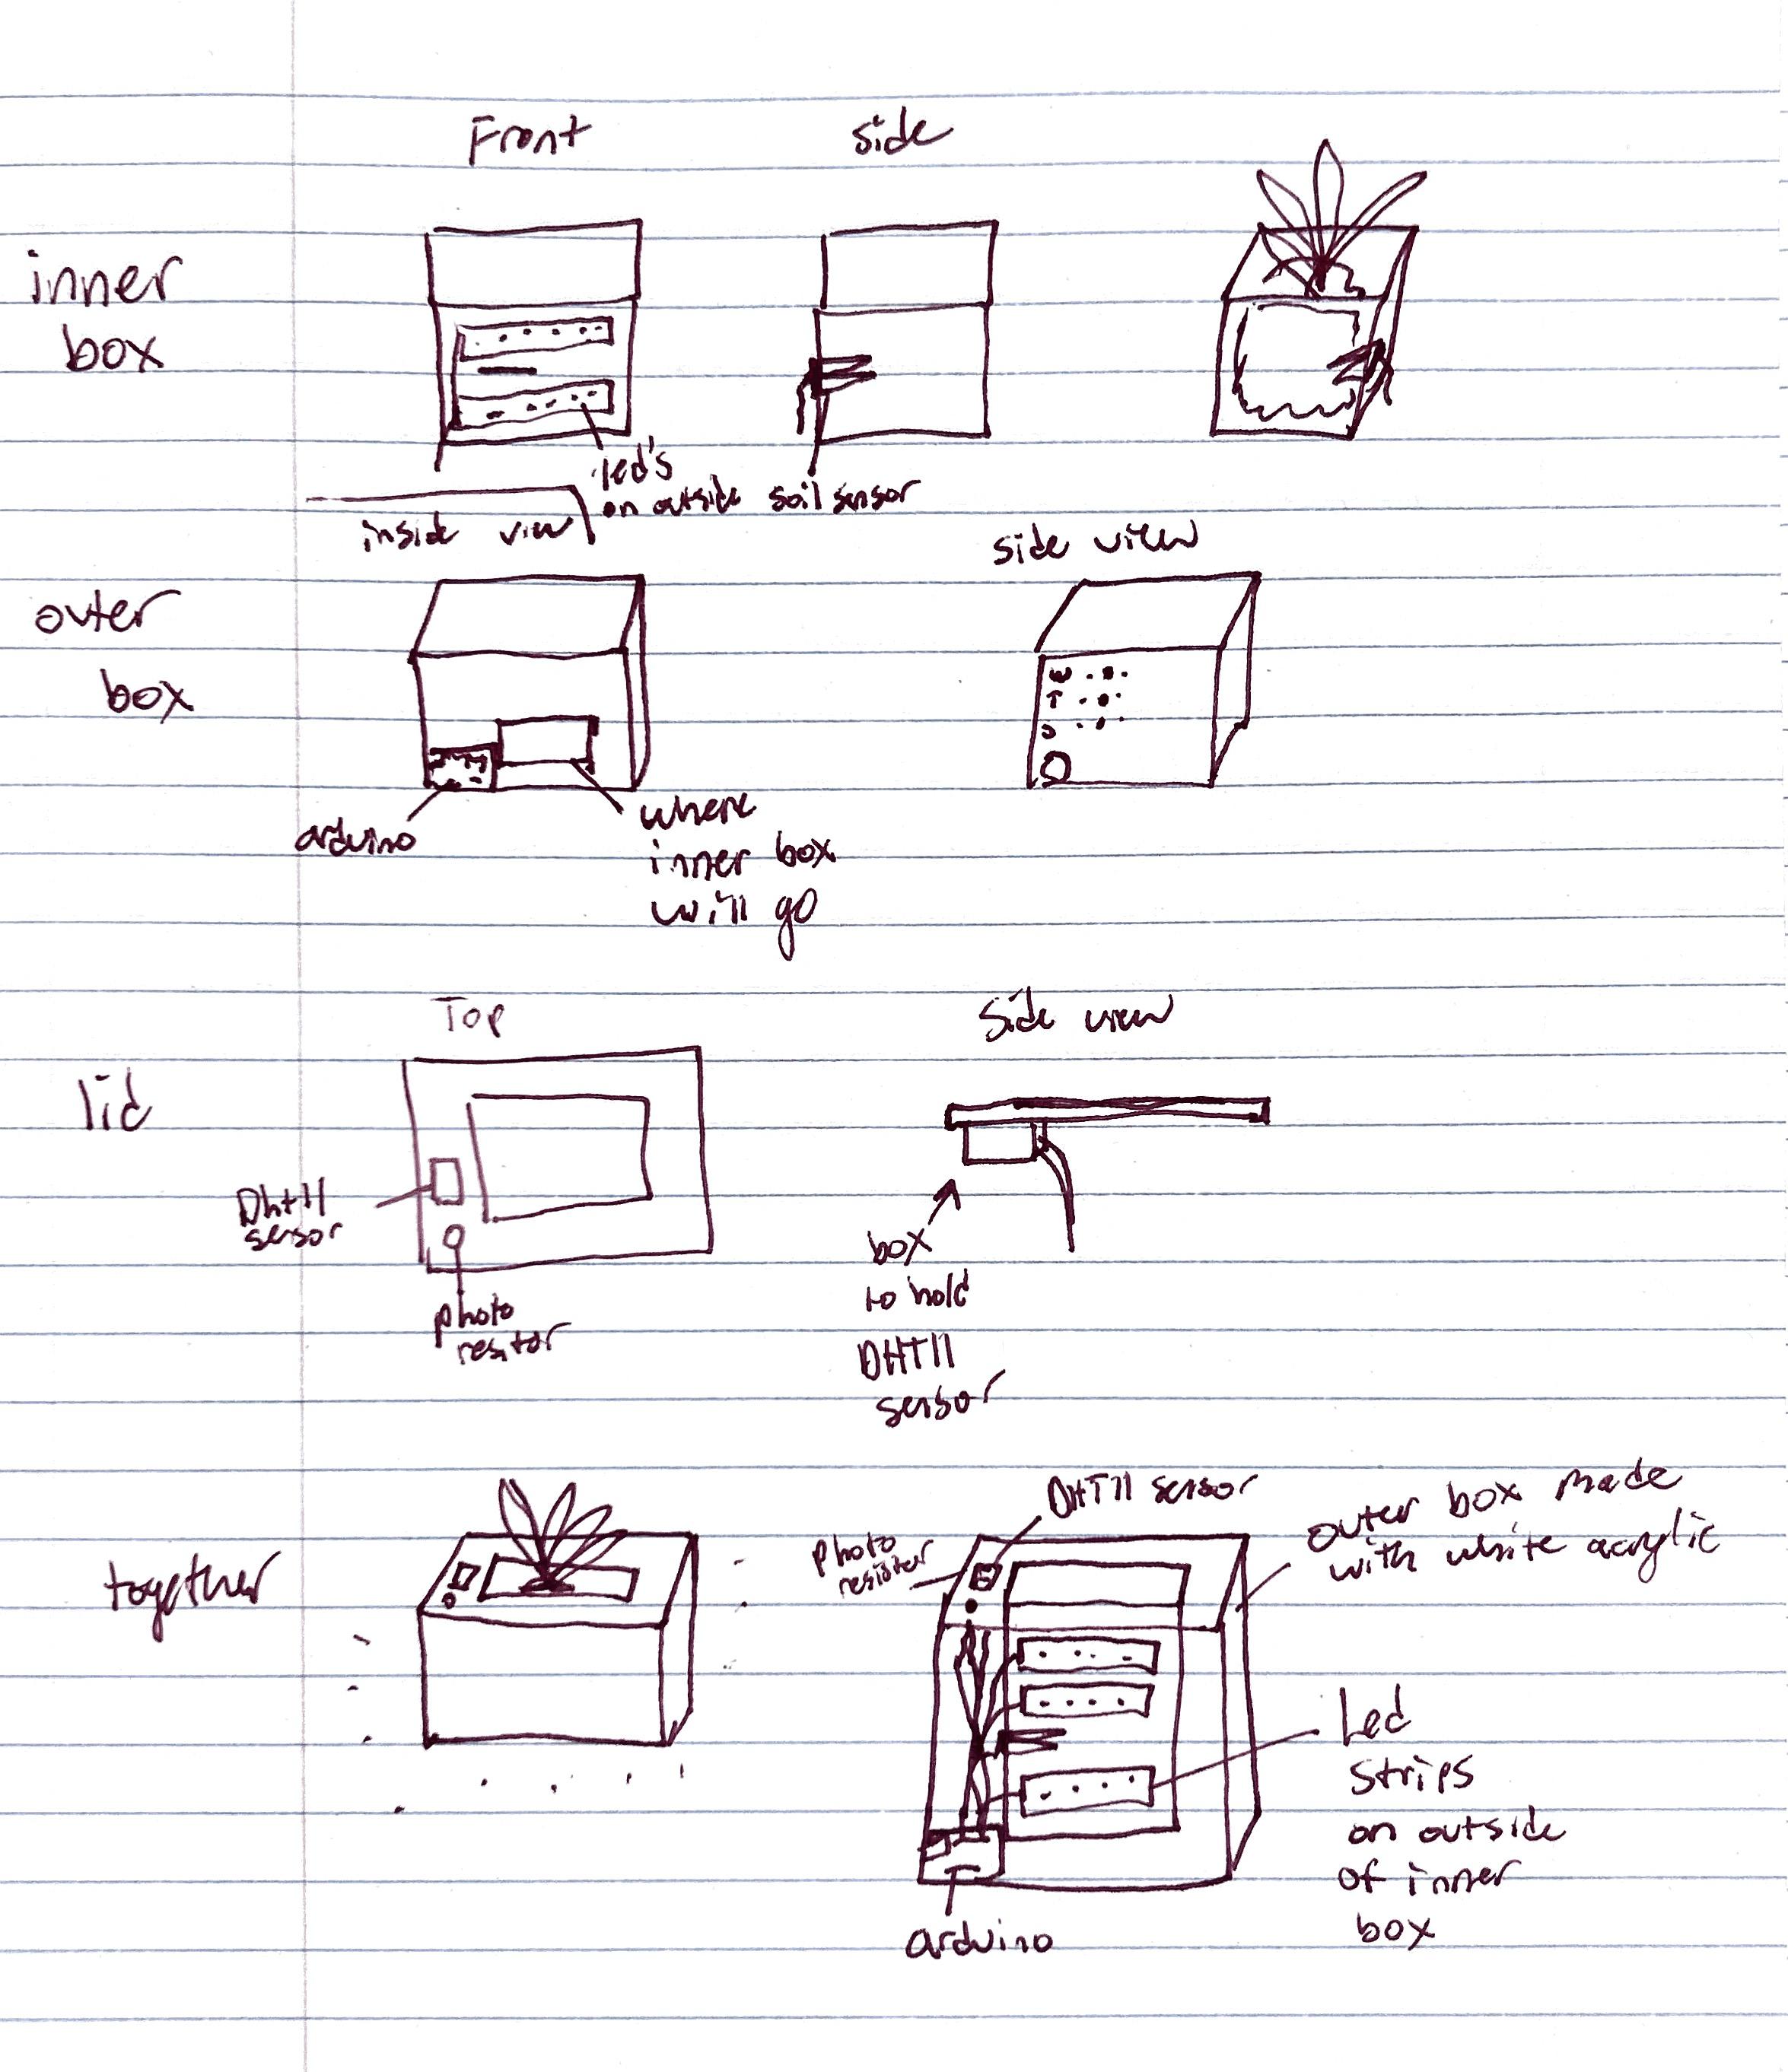 Front
side
inner
box
led's
on outside
soil sensor
inside view
side view
outer
box
W
T
arduino
where
inner box
will go
Top
Side view
lid
Dht11
sensor
photo
resitor
box
to hold
DHT11
sensor
together
DHT11 sensor
photo
resister
outer box made
with white acrylic
Led
strips
on outside
of inner
box
arduino